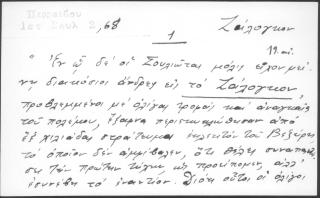 Περραιβού
Ιστ Σουλ 2, 68
Ζάλογκον
1
19 αἰ.
Ἐν ᾧ δέ οἱ Σουλιῶται μόλις εἶχον μεί-
νῃ διακόσιοι ἄνδρες εἰς τὸ Ζάλογκον,
προβλεμμένοι μὲ ὀλίγας τροφὰς καὶ ἀναγκαῖα
τοῦ πολέμου, ἔξαφνα περιεκυκλώθησαν ἀπὸ
ἕξ χιλιάδας στράτευμα ἐκλεκτὸν τοῦ Βεζύρη
τὸ ὁποῖον δὲν ἀμφίβαλεν, ὅτι θέλει συναπαν-
τήσῃ τὴν πρώτην τύχην ὡς προείπομεν, ἀλλ'
ἐσυνέβη τὸ ἐναντίον. Διότι οὗτοι οἱ ὀλίγοι